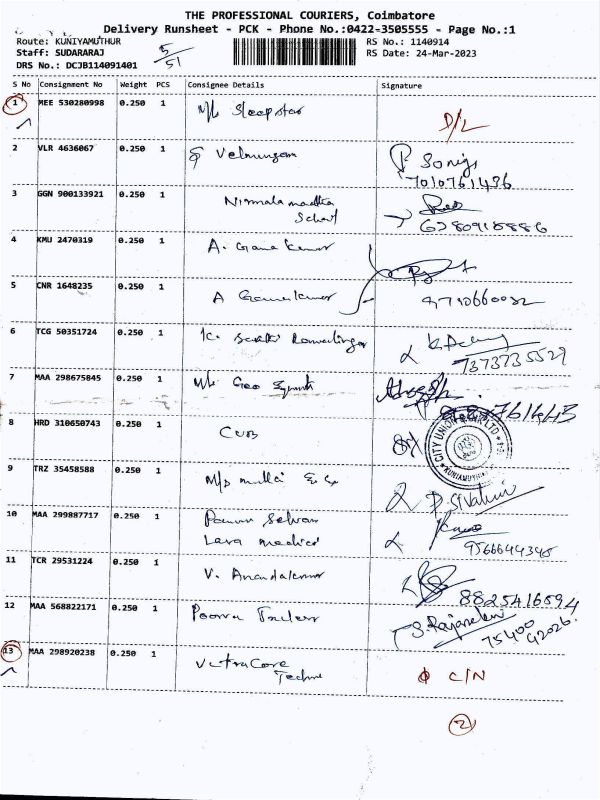 THE PROFESSIONAL COURIERS, Coimbatore
Delivery Runsheet - PCK - Phone No.:0422-3505555 - Page No.:1
Route: KUNIYAMUTHUR
RS No.: 1140914
Staff: SUDARARAJ
5/51
RS Date: 24-Mar-2023
DRS No.: DCJB114091401
S No Consignment No Weight PCS Consignee Details Signature
1 MEE 530280998 0.250 1 M/s Sleep star D/L
2 VLR 4636067 0.250 1 Velmurugan
7010761436
3 GGN 900133921 0.250 1 Nirmala matha
School 6380918886
4 KMU 2470319 0.250 1 A.
5 CNR 1648235 0.250 1 A
6 TCG 50351724 0.250 1 K. Ramalingam
7373735529
7 MAA 298675845 0.250 1 M/s Geo
8 HRD 310650743 0.250 1 CUB
CITY UNION BANK LTD
KUNIAMUTHUR
9 TRZ 35458588 0.250 1 M/s P. Sivakumar
10 MAA 299887717 0.250 1 Pannir Selvam
Lara medical 9566644345
11 TCR 29531224 0.250 1 V. Anandakumar
8825416594
12 MAA 568822171 0.250 1 Poorva Trailers
75400
42026
13 MAA 298920238 0.250 1 VetraCore
Techno C/N
2